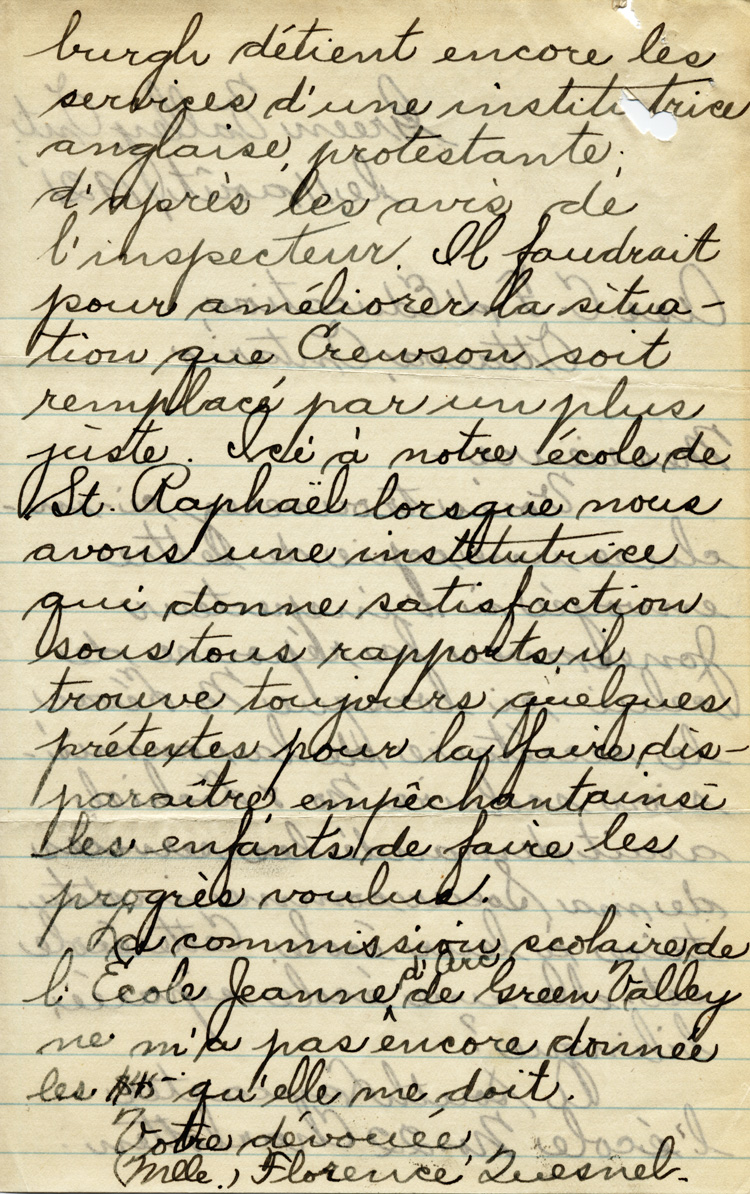 burgh détient encore les
services d'une institutrice
anglaise, protestante,
d'après les avis de
l'inspecteur. Il faudrait
pour améliorer la situa-
tion que Crewson soit
remplacé par un plus
juste. Ici à notre école de
St. Raphaël lorsque nous
avons une institutrice
qui donne satisfaction
sous tous rapports, il
trouve toujours quelques
prétextes pour la faire dis-
paraître, empêchant ainsi
les enfants de faire les
progrès voulus.
La commission scolaire de
l'École Jeanne d'Arc de Green Valley
ne m'a pas encore donnée
les qu'elle me doit.
Votre dévouée,
(Mlle.) Florence Quesnel.